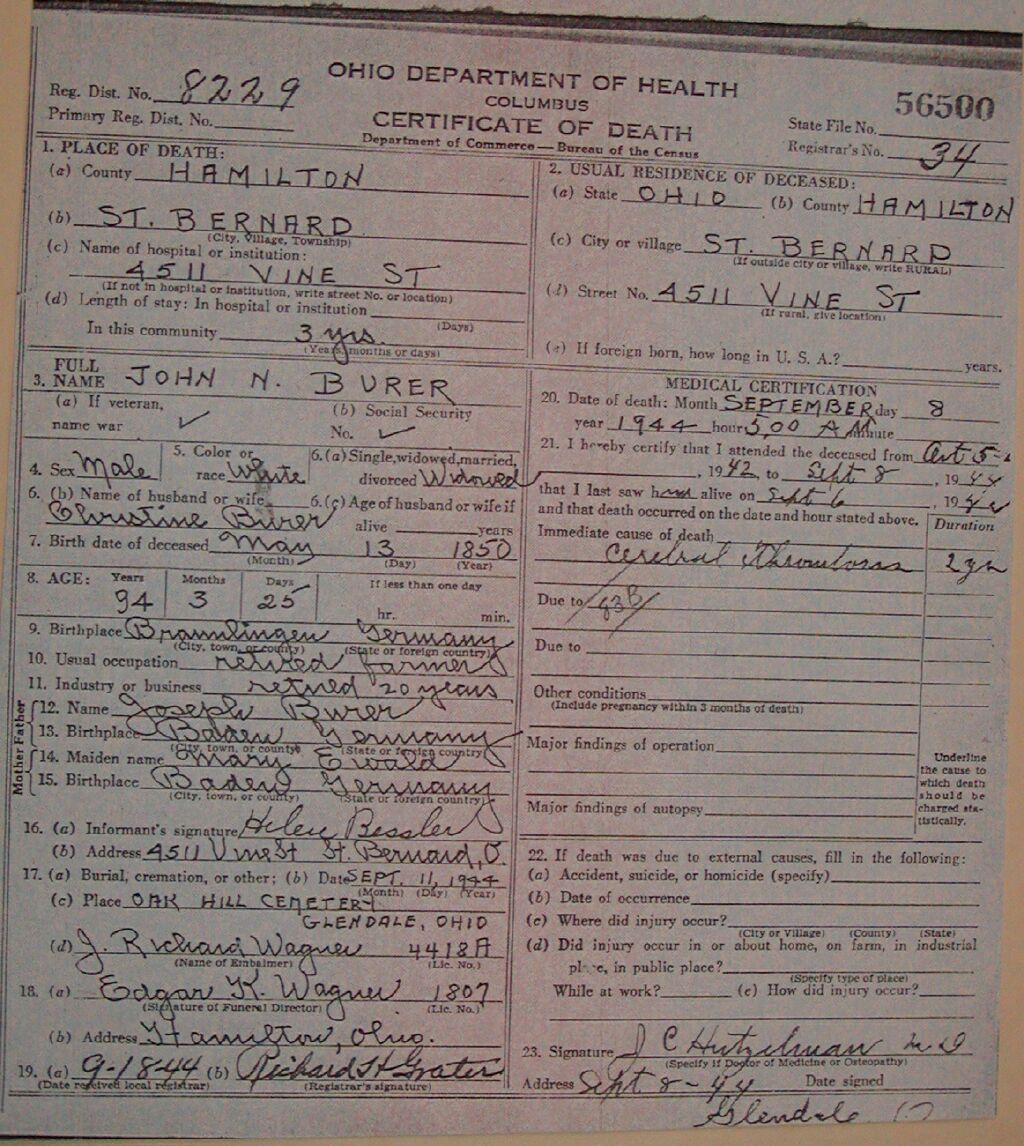 OHIO DEPARTMENT OF HEALTH
COLUMBUS
CERTIFICATE OF DEATH
Department of Commerce — Bureau of the Census
Reg. Dist. No. 8229
Primary Reg. Dist. No.
56500
State File No.
Registrar's No. 34
1. PLACE OF DEATH:
(a) County HAMILTON
(b) ST. BERNARD
(City, Village, Township)
(c) Name of hospital or institution:
4511 VINE ST
(If not in hospital or institution, write street No. or location)
(d) Length of stay: In hospital or institution
(Days)
In this community 3 yrs.
(Years, months or days)
2. USUAL RESIDENCE OF DECEASED:
(a) State OHIO (b) County HAMILTON
(c) City or village ST. BERNARD
(If outside city or village, write RURAL)
(d) Street No. 4511 VINE ST
(If rural, give location)
(e) If foreign born, how long in U. S. A.? years.
3. FULL NAME JOHN N. BURER
(a) If veteran, name war ✓
(b) Social Security No. ✓
4. Sex Male
5. Color or race White
6. (a) Single, widowed, married, divorced Widowed
6. (b) Name of husband or wife Christine Burer
6. (c) Age of husband or wife if alive years
7. Birth date of deceased May 13 1850
(Month) (Day) (Year)
8. AGE: Years Months Days If less than one day
94 3 25 hr. min.
9. Birthplace Germany
(City, town, or county) (State or foreign country)
10. Usual occupation retired farmer
11. Industry or business retired 20 years
Father
12. Name Joseph Burer
13. Birthplace Baden Germany
(City, town, or county) (State or foreign country)
Mother
14. Maiden name Mary Ewald
15. Birthplace Baden Germany
(City, town, or county) (State or foreign country)
16. (a) Informant's signature Helen Bessler
(b) Address 4511 Vine St St. Bernard, O.
17. (a) Burial, cremation, or other; (b) Date SEPT. 11, 1944
(Month) (Day) (Year)
(c) Place OAK HILL CEMETERY
GLENDALE, OHIO
(d) J. Richard Wagner 4418A
(Name of Embalmer) (Lic. No.)
18. (a) Edgar K. Wagner 1807
(Signature of Funeral Director) (Lic. No.)
(b) Address Hamilton, Ohio.
19. (a) 9-18-44 (b) Richard H Grater
(Date received local registrar) (Registrar's signature)
MEDICAL CERTIFICATION
20. Date of death: Month SEPTEMBER day 8
year 1944 hour 5,00 AM minute
21. I hereby certify that I attended the deceased from
, 1942, to Sept 8, 1944
that I last saw him alive on Sept 6, 1944
and that death occurred on the date and hour stated above.
Duration
Immediate cause of death
Cerebral Thrombosis 2 yrs
Due to
Due to
Other conditions
(Include pregnancy within 3 months of death)
Major findings of operation
Major findings of autopsy
Underline
the cause to
which death
should be
charged sta-
tistically.
22. If death was due to external causes, fill in the following:
(a) Accident, suicide, or homicide (specify)
(b) Date of occurrence
(c) Where did injury occur?
(City or Village) (County) (State)
(d) Did injury occur in or about home, on farm, in industrial
place, in public place?
(Specify type of place)
While at work? (e) How did injury occur?
23. Signature J C Hutzelman M D
(Specify if Doctor of Medicine or Osteopathy)
Address Sept 8-44 Date signed
Glendale